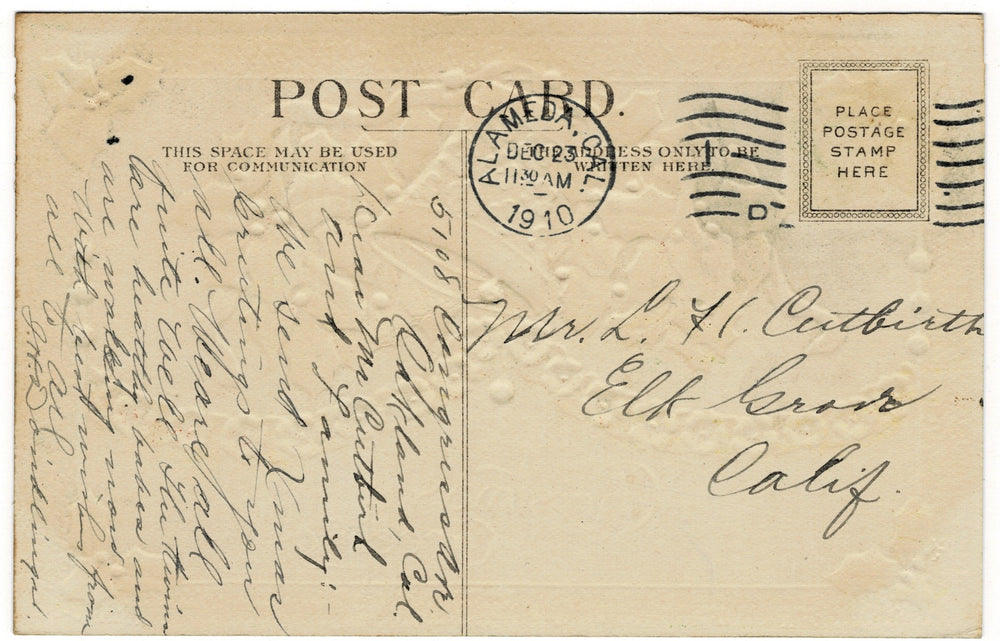 POST CARD.
THIS SPACE MAY BE USED
FOR COMMUNICATION
THE ADDRESS ONLY TO BE
WRITTEN HERE.
ALAMEDA, CAL.
DEC 23
11 30 AM
1910
D
PLACE
POSTAGE
STAMP
HERE
5108 Congress Av.
Oakland, Cal.
Dear Mr Cutbird
and family:-
We send Xmas
Greetings to you
all. We are all
quite well. The twins
are healthy babes and
are walking now
With best wishes from
all to all
Mr. L. H. Cutbirth
Elk Grove
Calif.